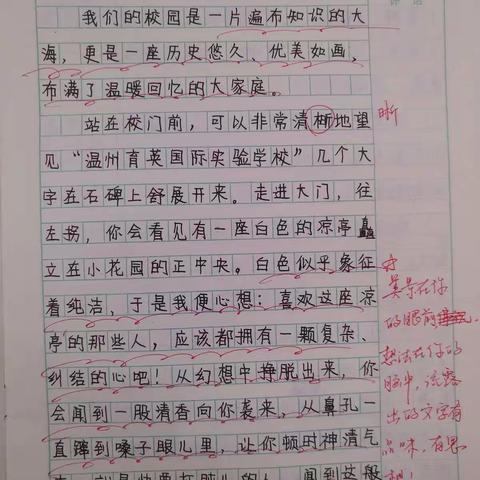 我们的校园是一片遍布知识的大
海，更是一座历史悠久、优美如画、
布满了温暖回忆的大家庭。
站在校门前，可以非常清晰地望
晰
见“温州育英国际实验学校”几个大
字在石碑上舒展开来。走进大门，往
左拐，你会看见有一座白色的凉亭矗
立在小花园的正中央。白色似乎象征
着纯洁，于是我便心想：喜欢这座凉
亭的那些人，应该都拥有一颗复杂、
纠结的心吧！从幻想中挣脱出来，你
会闻到一股清香向你袭来，从鼻孔一
直蹿到嗓子眼儿里，让你顿时神清气
美景在你
的眼前
想法在你的
脑中，流露
出的文字有
品味，有思